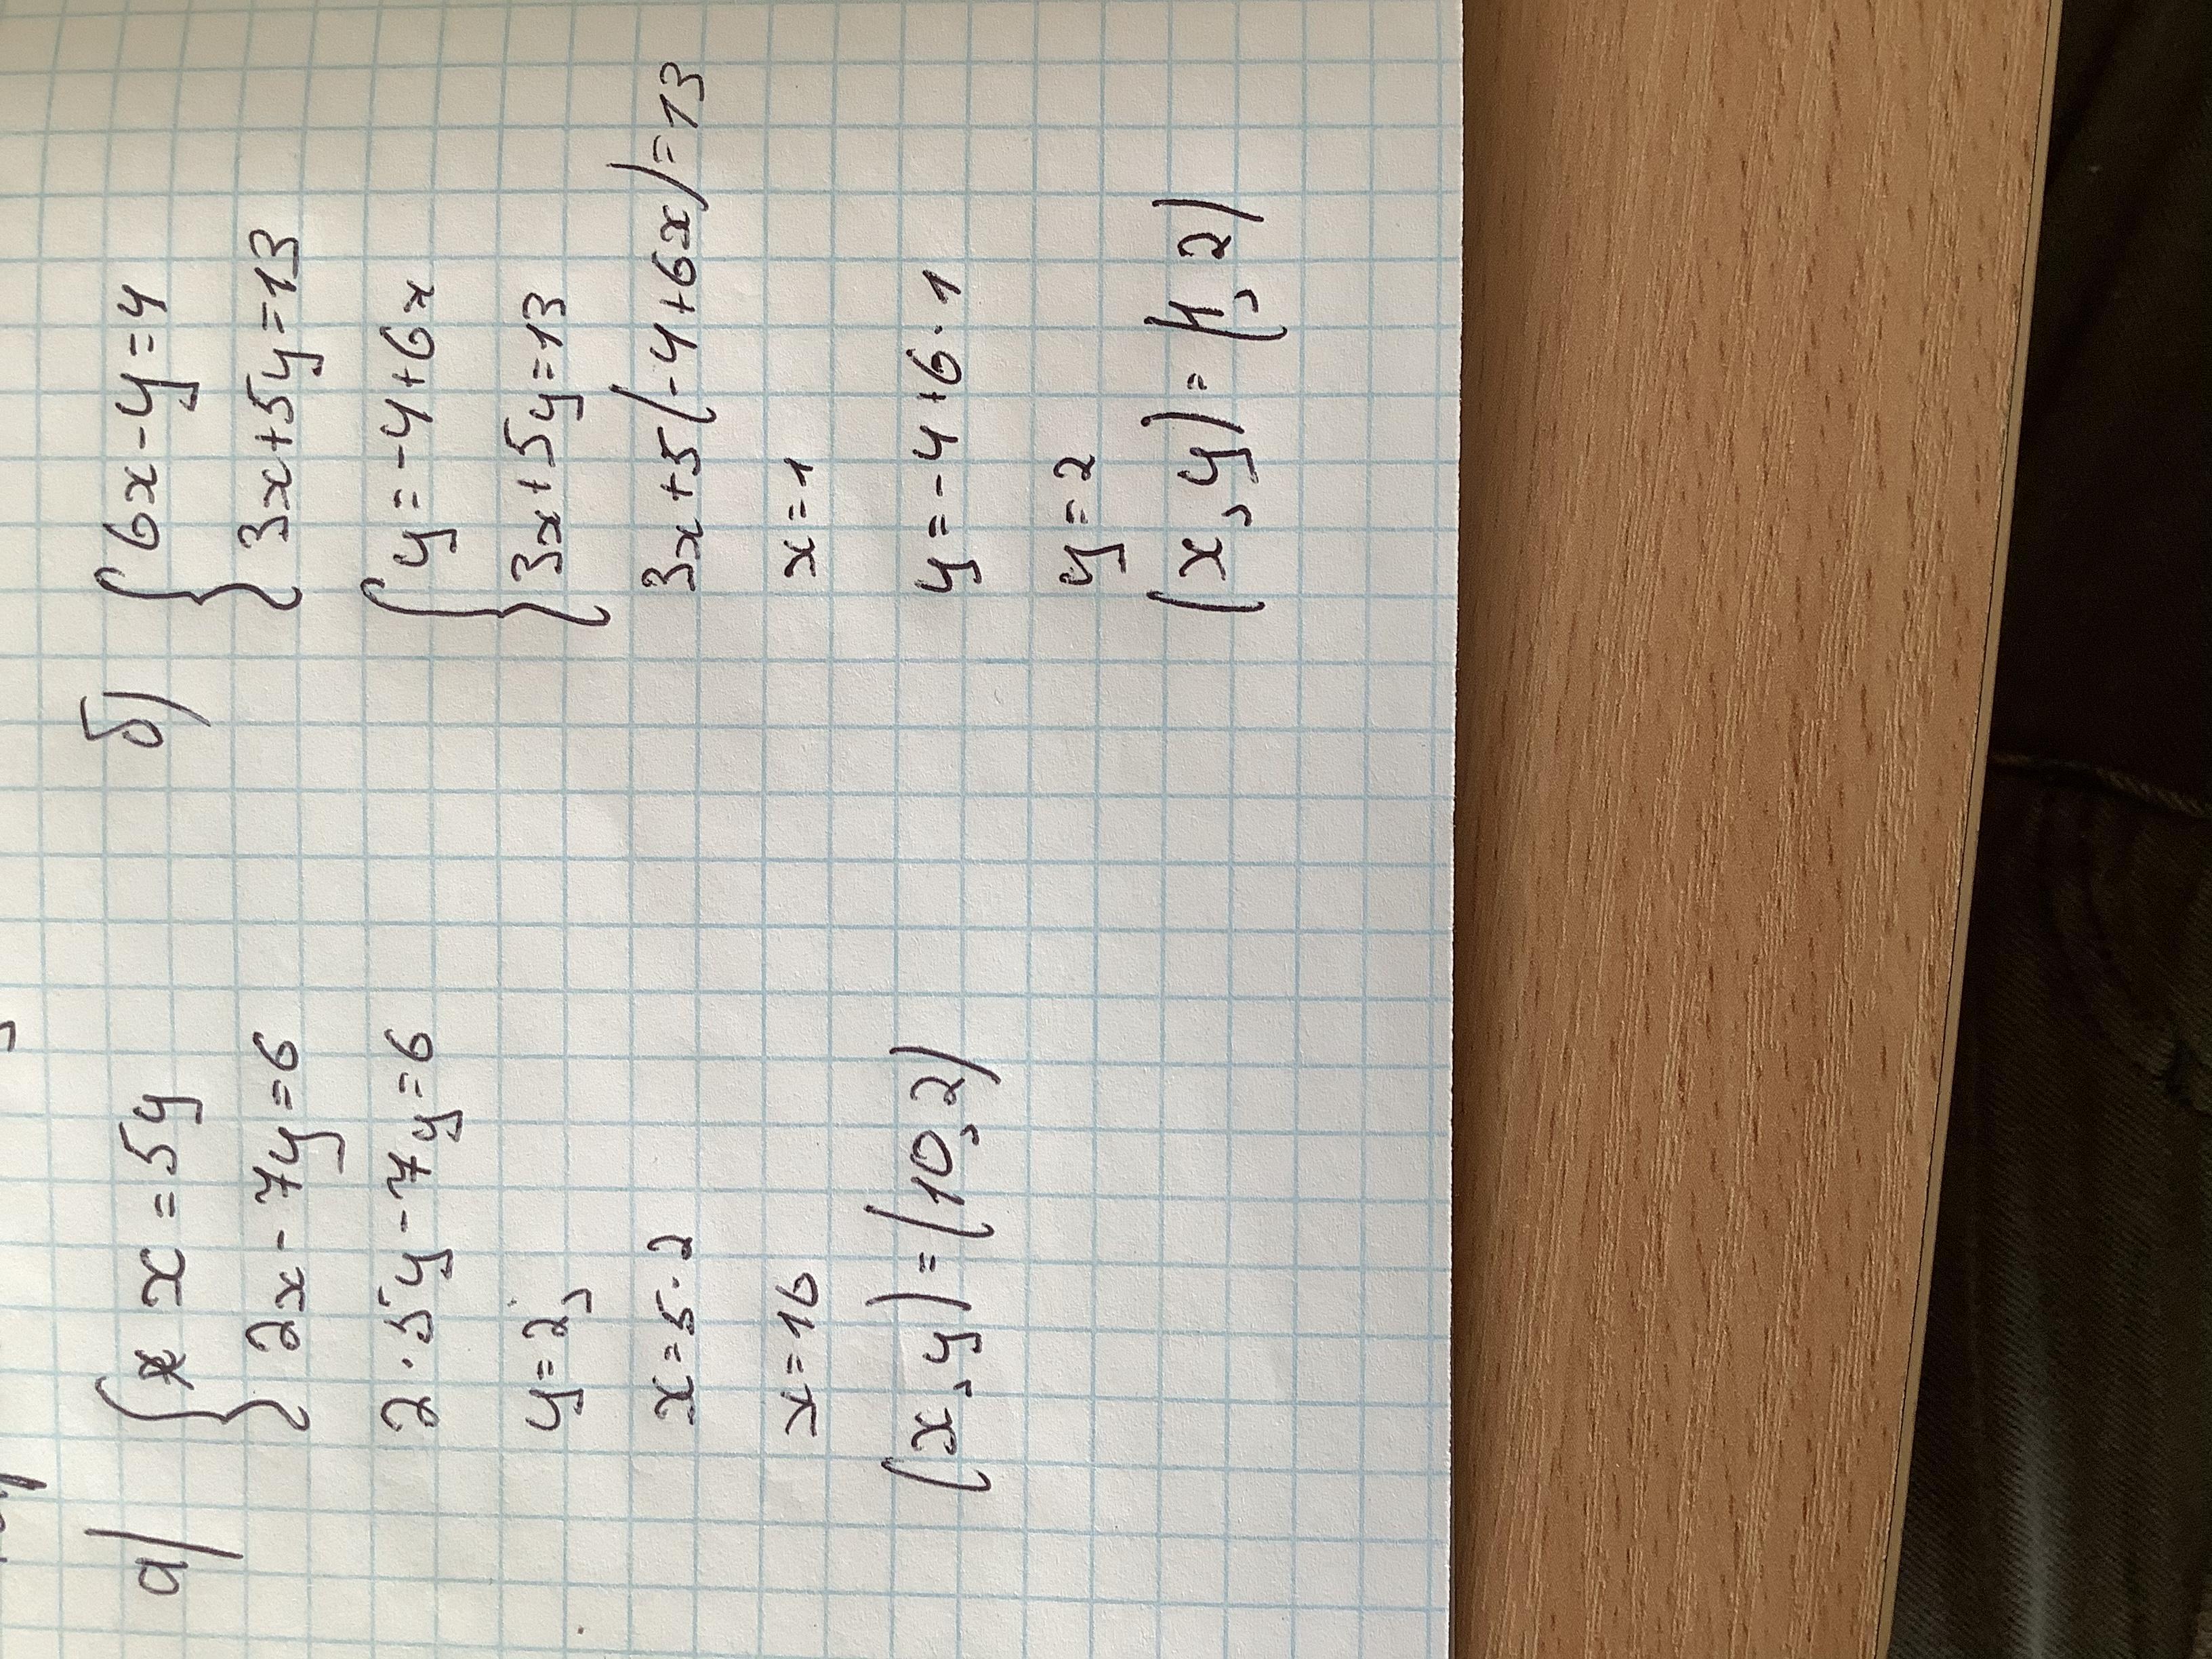 а)
{ x = 5y
2x - 7y = 6
2 · 5y - 7y = 6
y = 2,
x = 5 · 2
x = 10
(x, y) = (10, 2)
б)
{ 6x - y = 4
3x + 5y = 13
{ y = -4 + 6x
3x + 5y = 13
3x + 5(-4 + 6x) = 13
x = 1
y = -4 + 6 · 1
y = 2
(x, y) = (1, 2)